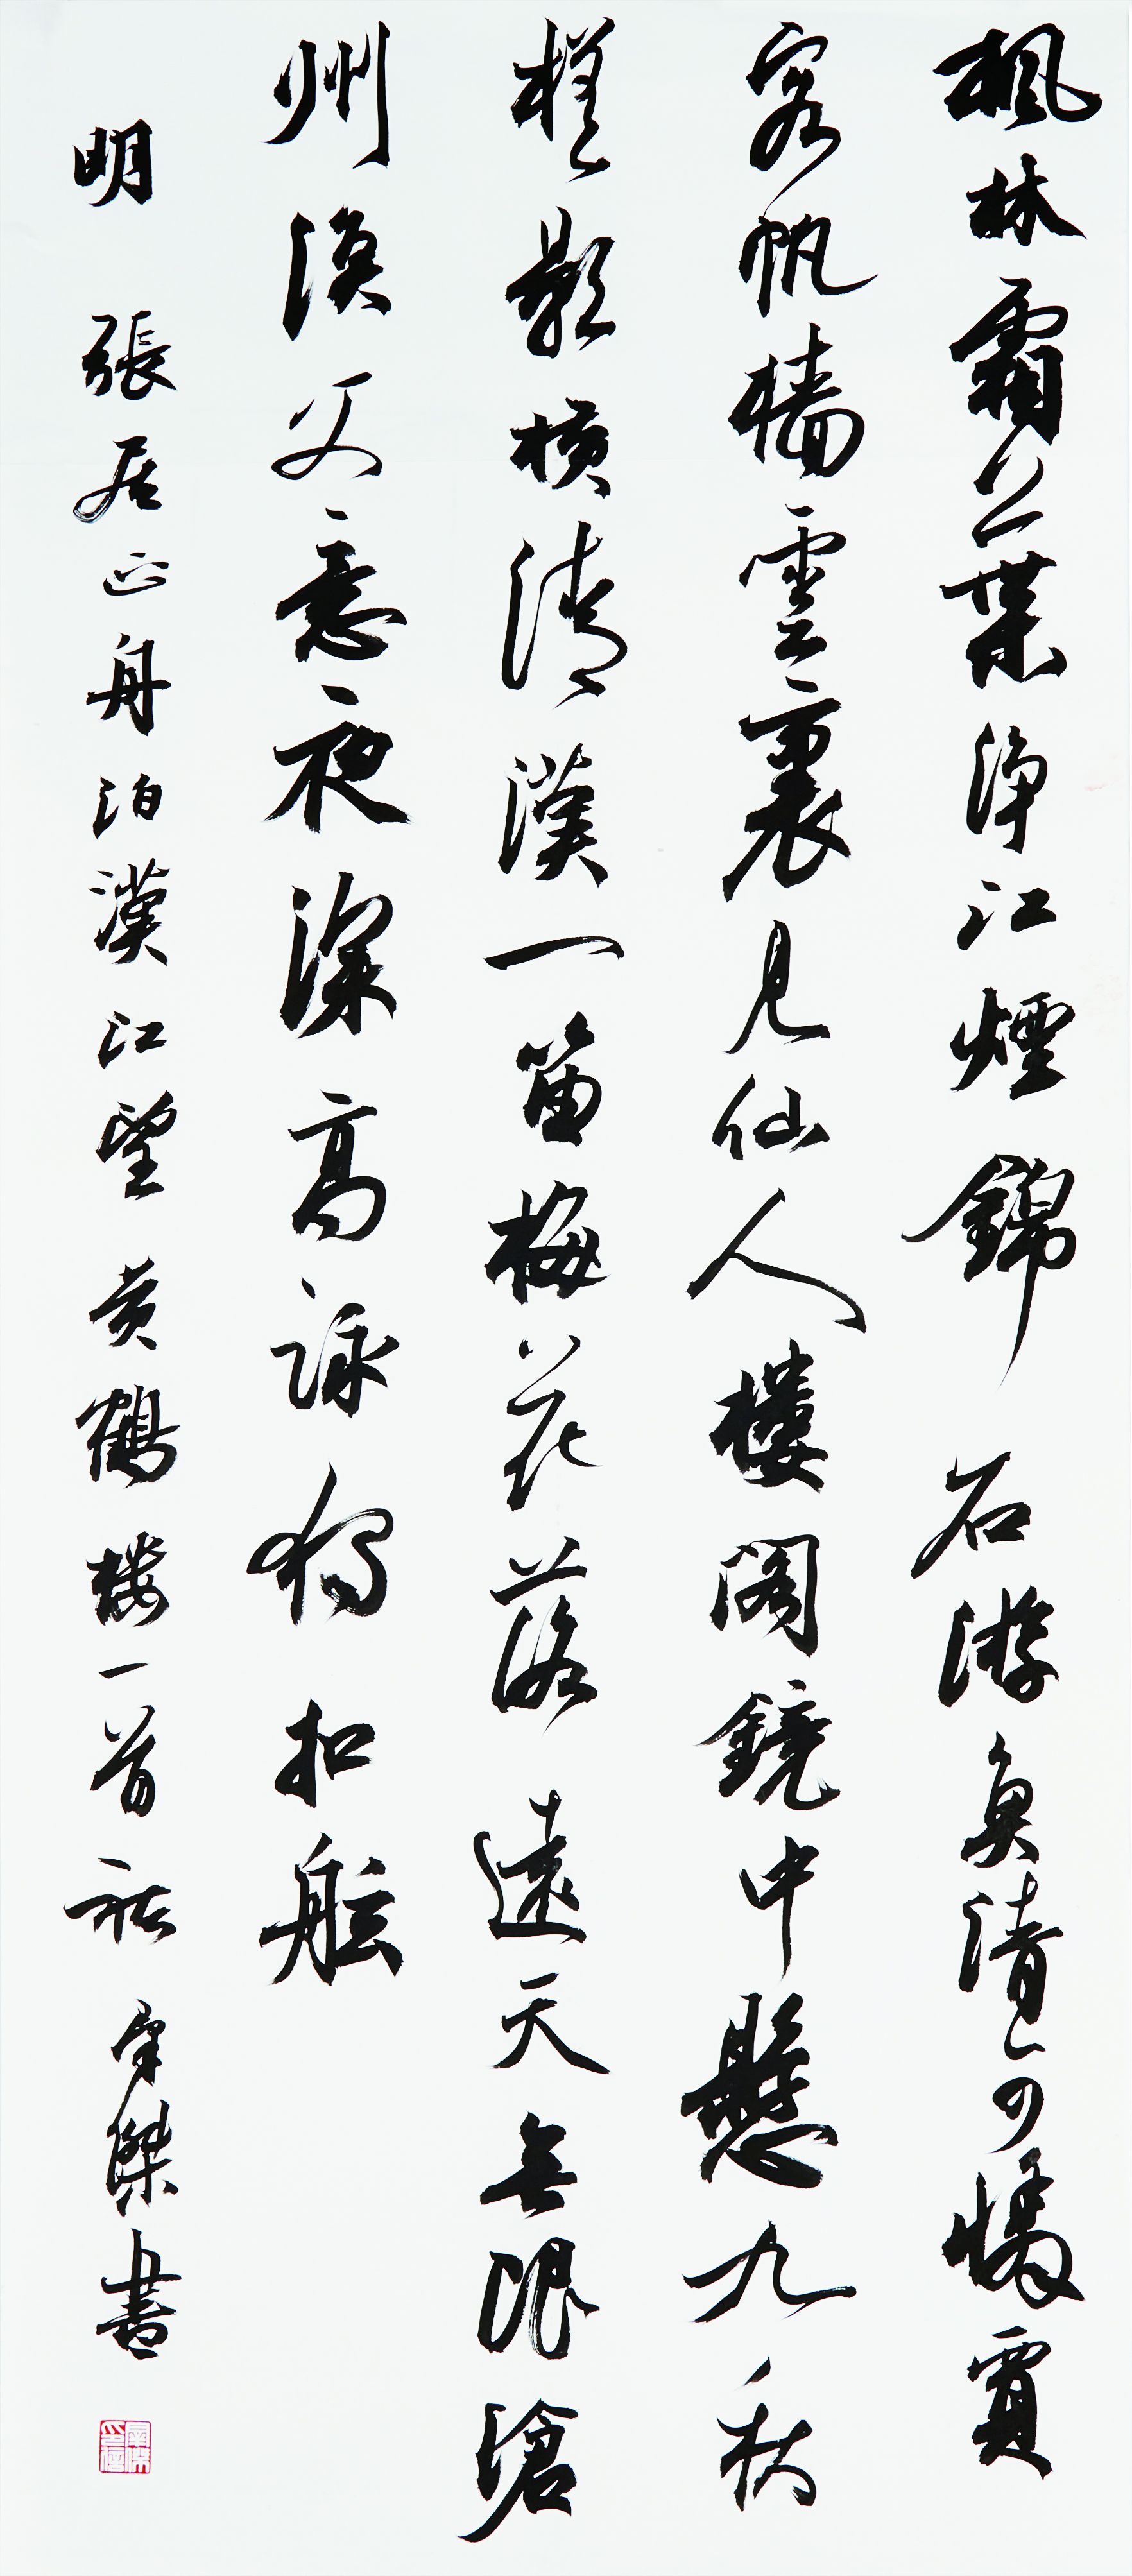 楓林霜葉淨江煙錦石游魚清可憐賈
客帆檣雲裏見仙人樓閣鏡中懸九秋
槎影橫清漢一笛梅花落遠天無限滄
州漁父意夜深高詠獨扣舷
明張居正舟泊漢江望黃鶴樓一首傑書